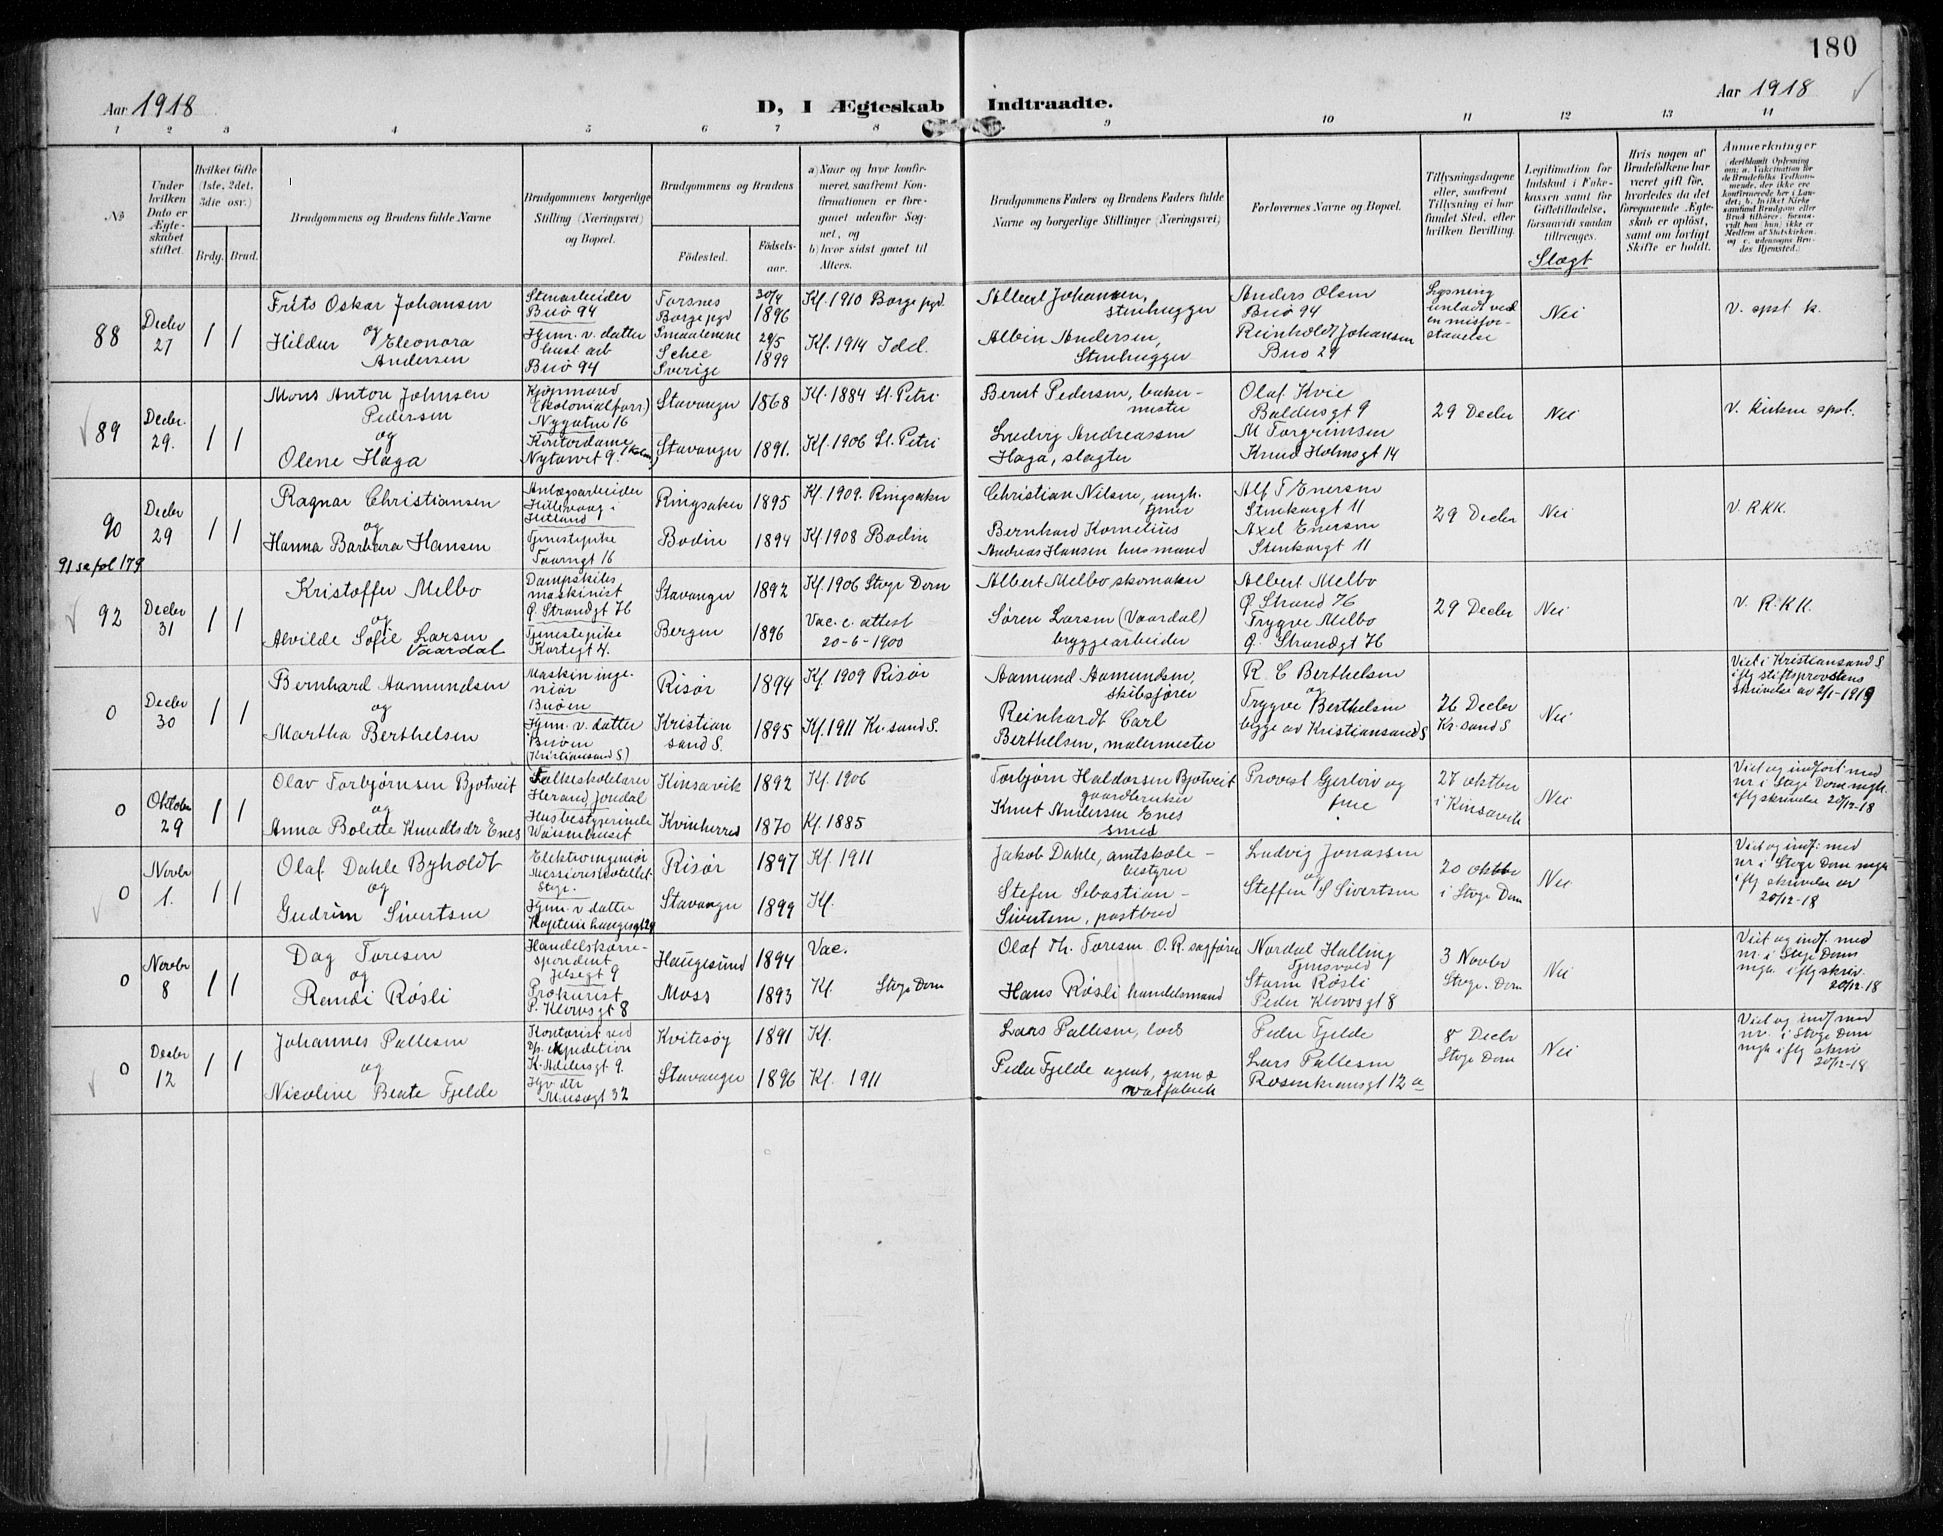 180
Aar 1918
D, I Ægteskab Indtraadte.
Aar 1918
1 2 3 4 5 6 7 8 9 10 11 12 13 14
№
Under hvilken Dato er Ægteskabet stiftet.
Hvilket Gifte (1ste, 2det, 3die osv.)
Brdg. Brud.
Brudgommens og Brudens fulde Navne
Brudgommens borgerlige Stilling (Næringsvei) og Bopæl.
Brudgommens og Brudens
Födested.
Födselsaar.
a) Naar og hvor konfirmeret, saafremt Konfirmationen er foregaaet udenfor Sognet, og
b) hvor sidst gaaet til Alters.
Brudgommens Faders og Brudens Faders fulde Navne og borgerlige Stillinger (Næringsvei)
Forlovernes Navne og Bopæl.
Tillysningsdagene eller, saafremt Tillysning ei har fundet Sted, efter hvilken Bevilling.
Legitimation for Indskud i Enkekassen samt for Giftetilladelse, forsaavidt saadan tiltrænges.
Slægt
Hvis nogen af Brudefolkene har været gift för, hvorledes da det foregaaende Ægteskab er oplöst, samt om lovligt Skifte er holdt.
Anmerkninger
(deriblandt Oplysning om: a. Vakcination for de Brudefolks Vedkommende, der ikke ere konfirmerede her i Landet; b. hvilket Kirkesamfund Brudgom eller Brud tilhörer, forsaavidt han (hun) ikke er Medlem af Statskirken, og c. udensogns Brudes Hjemsted.)
88
Decbr 27
1 1
Frits Oskar Johansen
og
Hildur Eleonora Andersen
Stenarbeider
Buö 94
Hjem. v. datter
hust arb
Buö 94
Torsnes
Borge pgd
Smaalenene
Schee
Sverige
30/4 1896
29/5 1899
Kf. 1910 Borge pgd.
Kf. 1914 Idd.
Albert Johansen, stenhugger
Albin Andersen, Stenhugger
Anders Olsen
Buö 94
Reinholdt Johansen
Buö 29
Lysning
unladt ved
en misforstaaelse
Nei
V. spst k.
89
Decbr. 29.
1 1
Mons Anton Johnsen Pedersen
og
Olene Haga
Kjöpmand
(kolonialforr.)
Nygaten 16
Kontordame
Nytorvet 9.
Stavanger 1868
Stavanger 1891.
Kf. 1884 St. Petri
Kf. 1906 St. Petri
Bernt Pedersen, bakermester
Ludvig Andreassen Haga, slagter
Olaf Kvie
Baldersgt 9
M Torgrimsen
Knud Holmsgt 14
29 Decbr
Nei
V. kirken spst.
90
Decbr 29
1 1
Ragnar Christiansen
og
Hanna Barbara Hansen
Anlægsarbeider
Hillevaag
Hetland
Tjenestepike
Taarngt 16
Ringsaker 1895
Bodin 1894
Kf. 1909. Ringsaker
Kf. 1908 Bodin
Christian Nilsen, ungk.
Bernhard Kornelius
Andreas Hansen husmand
Alf T Enersen
Stenkargt 11
Axel Enersen
Stenkargt 11
29 Decbr
Nei
V. RKK.
91 se fol 179
92
Decbr 31
1 1
Kristoffer Melbo
og
Alvilde Sofie Larsen Vaardal
Dampskibs
maskinist
Ø. Strandgt 76
Tjenestepike
Kortegt 4.
Stavanger 1892
Bergen 1896
Kf. 1906 Stvgr Dom
Vac. c. attest
20-6-1900
Albert Melbo skomaker
Søren Larsen (Vaardal)
bryggearbeider
Albert Melbo
Ø Strand 76
Trygve Melbo
Ø. Strandgt 76
29 Decbr
Nei
V. R.K.K.
0
Decbr 30
1 1
Bernhard Aamundsen
og
Martha Berthelsen
Maskininge
niör
Buöen
Hjem. v. datter
Buöen
Kristiansand S)
Risør 1894
Kristian
sand S. 1895
Kf 1909 Risør
Kf. 1911 Kr. sand S.
Aamund Aamundsen, skibsfører
Reinhardt Carl
Berthelsen, malermester
R. C Berthelsen
og
Trygve Berthelsen
begge av Kristiansand S
26 Decbr
Kr. sand S
Nei
Viet i Kristiansand S
iflg stiftsprovstens
skrivelse av 2/1-1919
0
Oktober 29
1 1
Olav Torbjørnsen Bjotveit
og
Anna Bolette Knudtsdr Enes
Folkeskolelærer
Herand Jondal
Husbestyrerinde
Waisenhuset
Kinsarvik 1892
Kvinherred 1870
Kf. 1906
Kf. 1885
Torbjørn Haldorsen Bjotveit
gaardbruker
Knut Andersen Enes
smed
Provst Gjerløw og
frue
27 oktbr
i Kinsarvik
Nei
Viet og indført med
nr i Stvgr Dommgh.
iflg skrivelse 20/12-18
0
Novbr 1.
1 1
Olaf Dahle Byholdt
og
Gudrun Sivertsen
Elektroingeniör
Missionshotellet
Stvgr.
Hjem. v datter
Kaptein Langesgt 29
Risør 1897
Stavanger 1899
Kf. 1911
Kf.
Jakob Dahle, amtskolebestyrer
Stefen Sebastian
Sivertsen, postbud
Ludvig Jonassen
og
Steffen S Sivertsen
20 oktbr
i Stvgr Dom
Nei
Viet og indf. med
nr. i Stvgr Dom mgh
iflg skrivelse av
20/12-18
0
Novbr 8
1 1
Dag Toresen
og
Randi Røsli
Handelskorre-
spondent
Jelsegt 9
Prokurist
P. Klowsgt 8
Haugesund 1894
Moss 1893
Vac.
Kf Stvgr Dom
Olaf Th. Toresen O. R. sagfører
Hans Røsli handelsmand
Nordal Halling
Tjensvold
Røsli
Peder Klowsgt 8
3 Novbr
Stvgr. Dom
Nei
Viet og indf. med
nr. i Stvgr Dom
mgh. iflg skriv.
20/12-18
0
Decbr 12
1 1
Johannes Pallesen
og
Nicoline Beate Fjelde
Kontorist ved
D/s. expedition
K. Meiersgt 9.
Hjv. dtr
Musegt 32
Kvitesöy 1891
Stavanger 1896
Kf.
Kf. 1911
Lars Pallesen, lods
Peder Fjelde agent, garn &
Peder Fjelde
Lars Pallesen
Rosenkransgt 12 a
8 Decbr
Stvgr Dom
Nei
Viet og indf med
nr. i Stvgr Dom
mgh iflg skriv
20/12-18